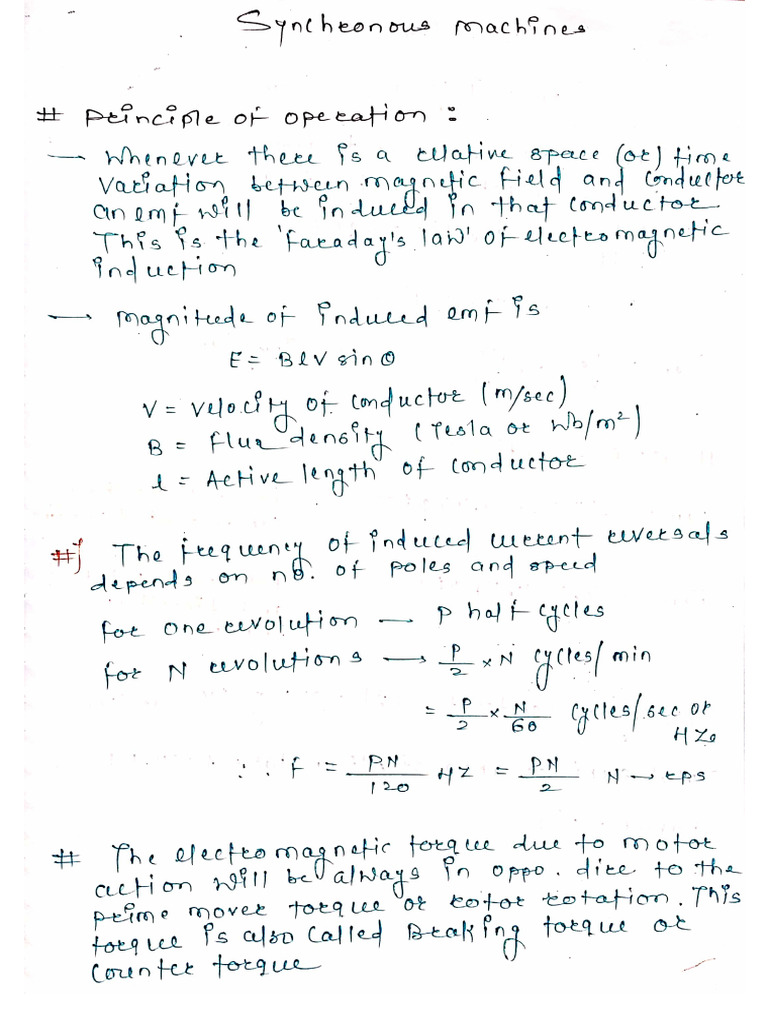 Synchronous machines
# principle of operation :
→ Whenever there is a relative space (or) time
variation between magnetic field and conductor
an emf will be induced in that conductor.
This is the 'faraday's law' of electromagnetic
induction
→ magnitude of induced emf is
E = Blv sin θ
V = velocity of conductor (m/sec)
B = flux density (Tesla or Wb/m²)
l = Active length of conductor
# The frequency of induced current reversals
depends on no. of poles and speed
for one revolution — P half cycles
for N revolutions → P/2 × N cycles/min
= P/2 × N/60 cycles/sec or
HZ.
∴ f = PN/120 HZ = PN/2 N → rps
# The electromagnetic torque due to motor
action will be always in oppo. dire to the
prime mover torque or rotor rotation. This
torque is also called Braking torque or
Counter torque